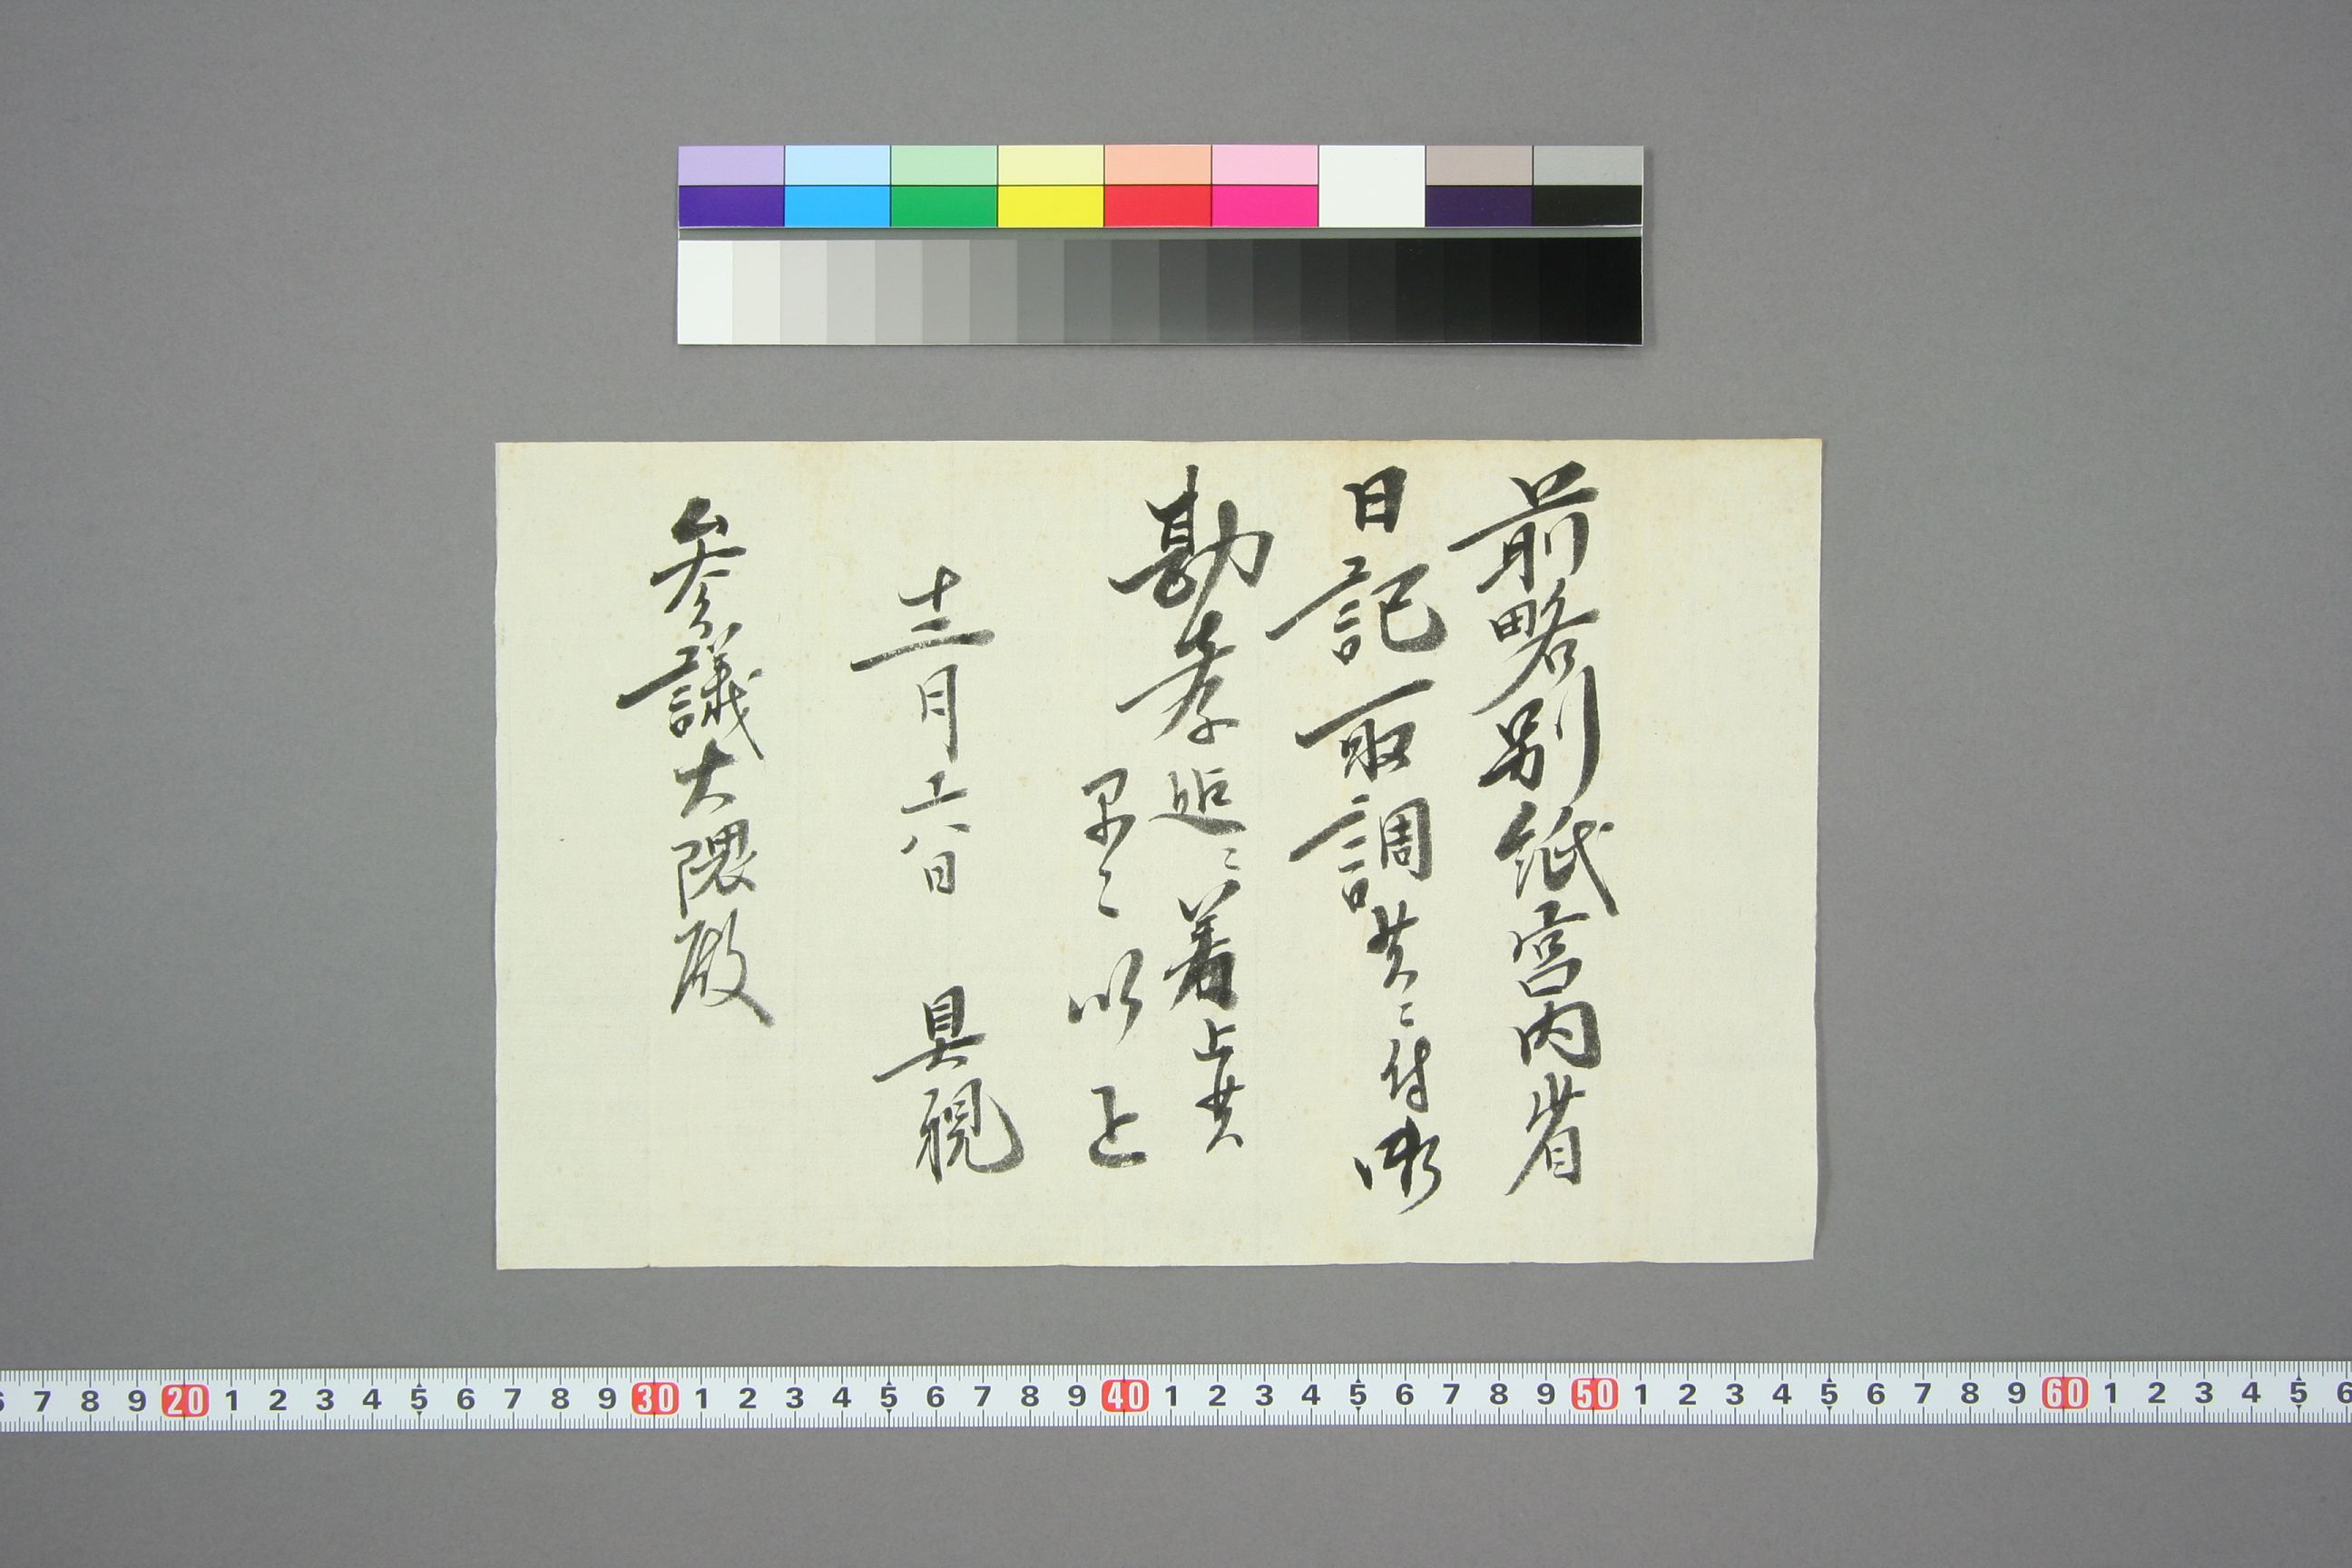 前略別紙宮内省
日記取調候ニ付御
勘考迄ニ差上候
早々以上
十二月六日 具視
参議大隈殿
6 7 8 9 20 1 2 3 4 5 6 7 8 9 30 1 2 3 4 5 6 7 8 9 40 1 2 3 4 5 6 7 8 9 50 1 2 3 4 5 6 7 8 9 60 1 2 3 4 5 6